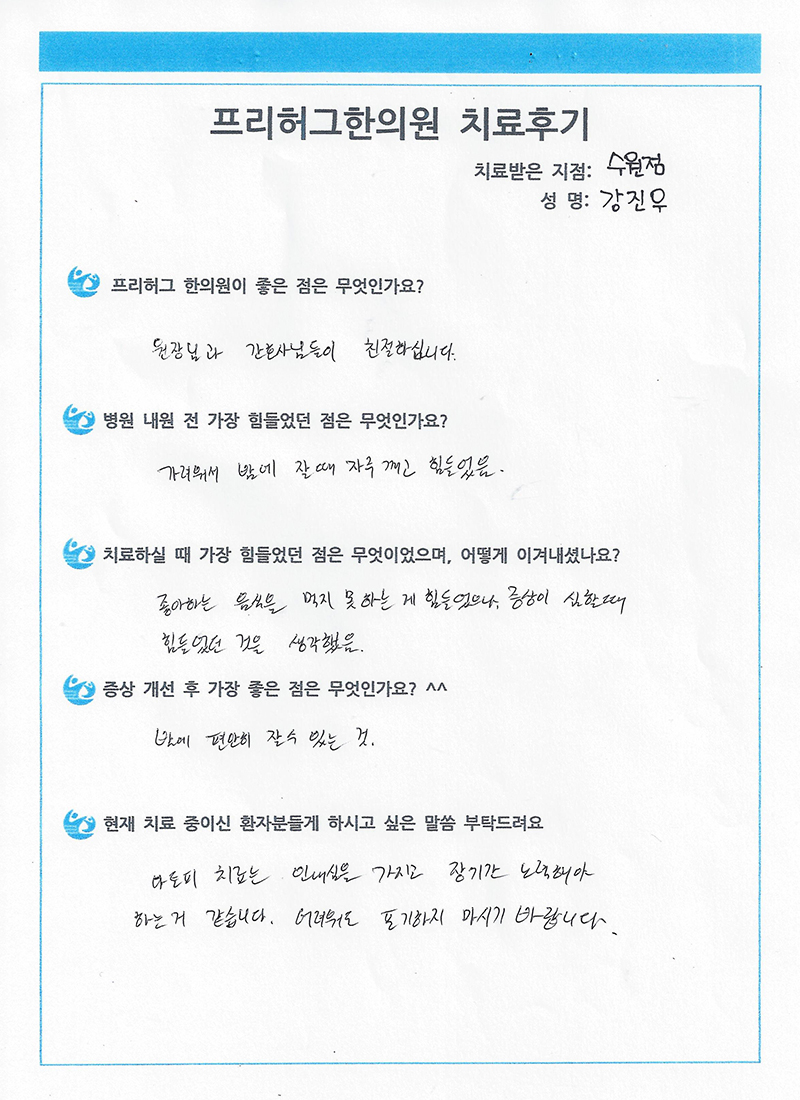 프리허그한의원 치료후기
치료받은 지점: 수원점
성 명: 강진우
프리허그 한의원이 좋은 점은 무엇인가요?
원장님과 간호사님들이 친절하십니다.
병원 내원 전 가장 힘들었던 점은 무엇인가요?
가려워서 밤에 잘때 자주 깨고 힘들었음.
치료하실 때 가장 힘들었던 점은 무엇이었으며, 어떻게 이겨내셨나요?
좋아하는 음식을 먹지 못하는 게 힘들었으나, 증상이 심할때
힘들었던 것을 생각했음.
증상 개선 후 가장 좋은 점은 무엇인가요? ^^
밤에 편안히 잘수 있는 것.
현재 치료 중이신 환자분들게 하시고 싶은 말씀 부탁드려요
아토피 치료는 인내심을 가지고 장기간 노력해야
하는거 같습니다. 어려워도 포기하지 마시기 바랍니다.